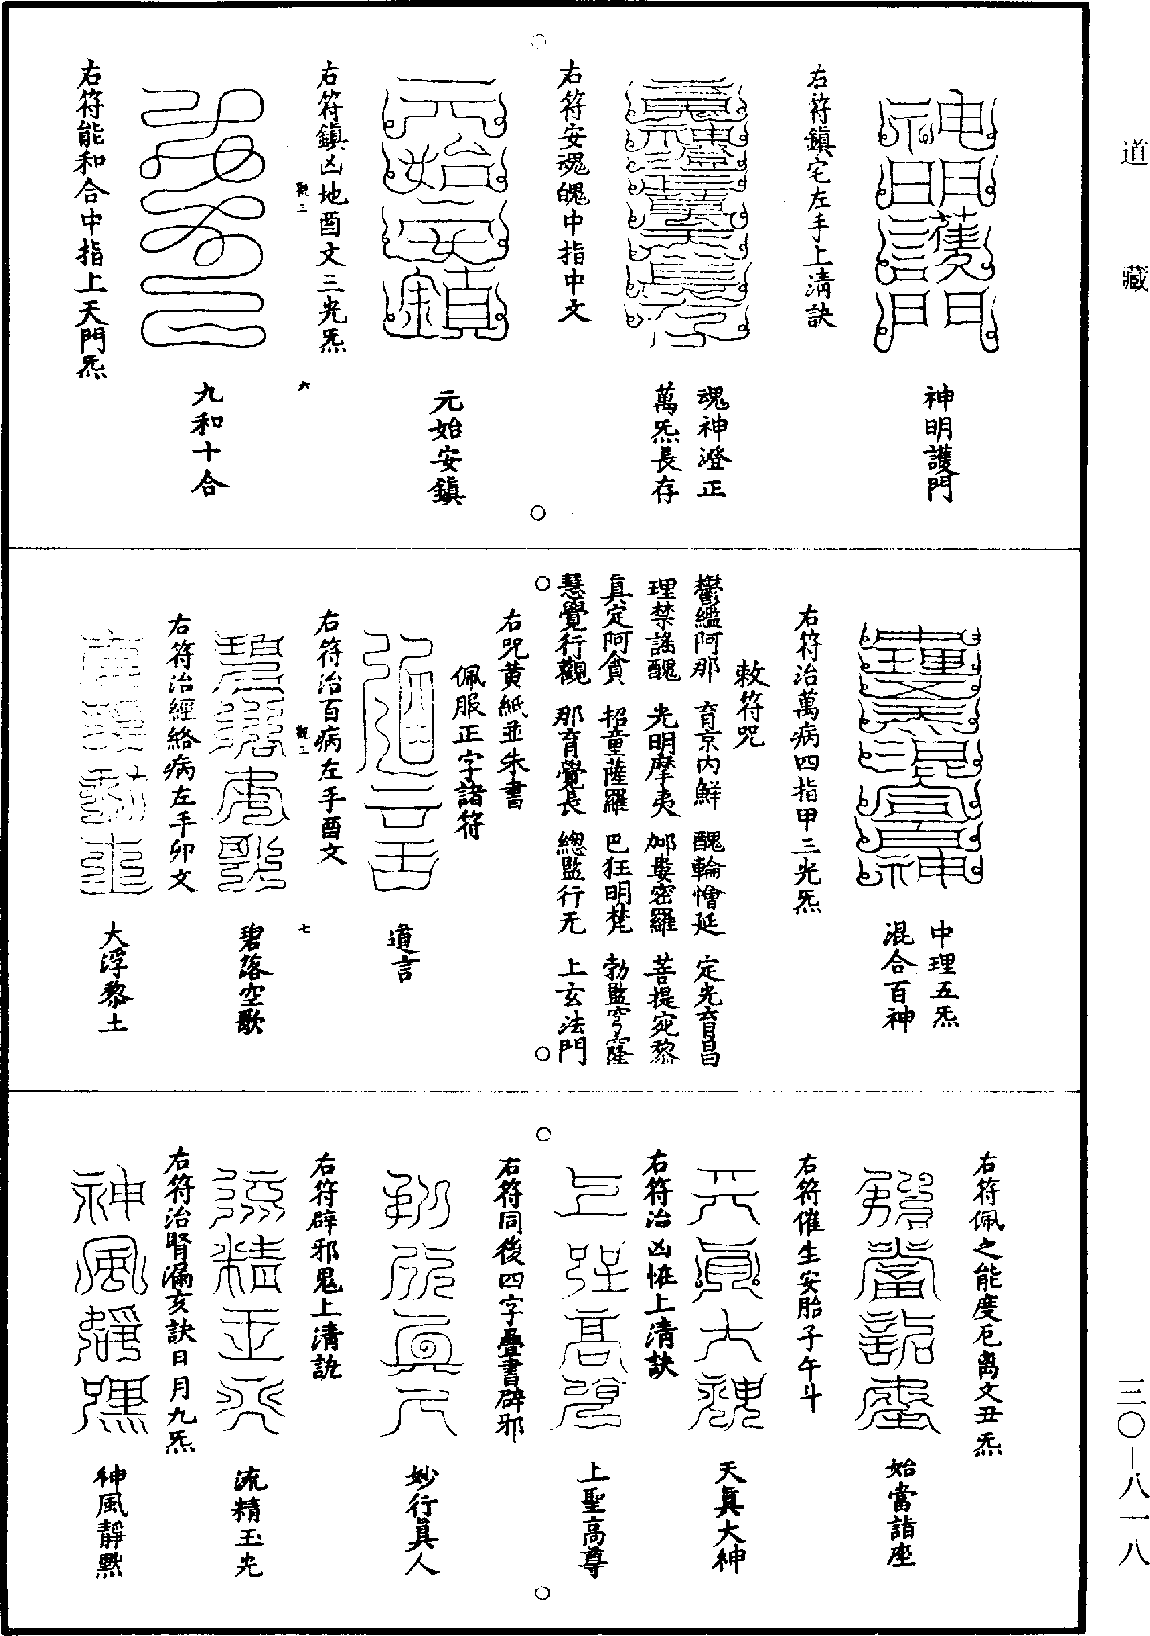 道藏
神明護門
右符鎮宅左手上清訣
魂神澄正
萬炁長存
右符安魂魄中指中文
元始安鎮
右符鎮凶地酉文三光炁
六
九和十合
右符能和合中指上天門炁
中理五炁
混合百神
右符治萬病四指甲三光炁
敕符咒
鬱繿阿那 育京內鮮 醜輪憎延 定光育昌
理禁謠醜 光明摩夷 邮婁密羅 菩提宛黎
真定阿貪 招童薩羅 巴狂明梵 勃監穹窿
慧覺行觀 那育覺長 總監行无 上玄法門
右咒黃紙並朱書
佩服正字諸符
道言
右符治百病左手酉文
七
碧落空歌
右符治經絡病左手卯文
大浮黎土
右符佩之能度厄离文丑炁
始當詣座
右符催生安胎子午斗
天真大神
右符治凶怪上清訣
上聖高尊
右符同後四字疊書辟邪
妙行真人
右符辟邪鬼上清訣
流精玉光
右符治腎漏亥訣日月九炁
神風靜默
三〇—八一八